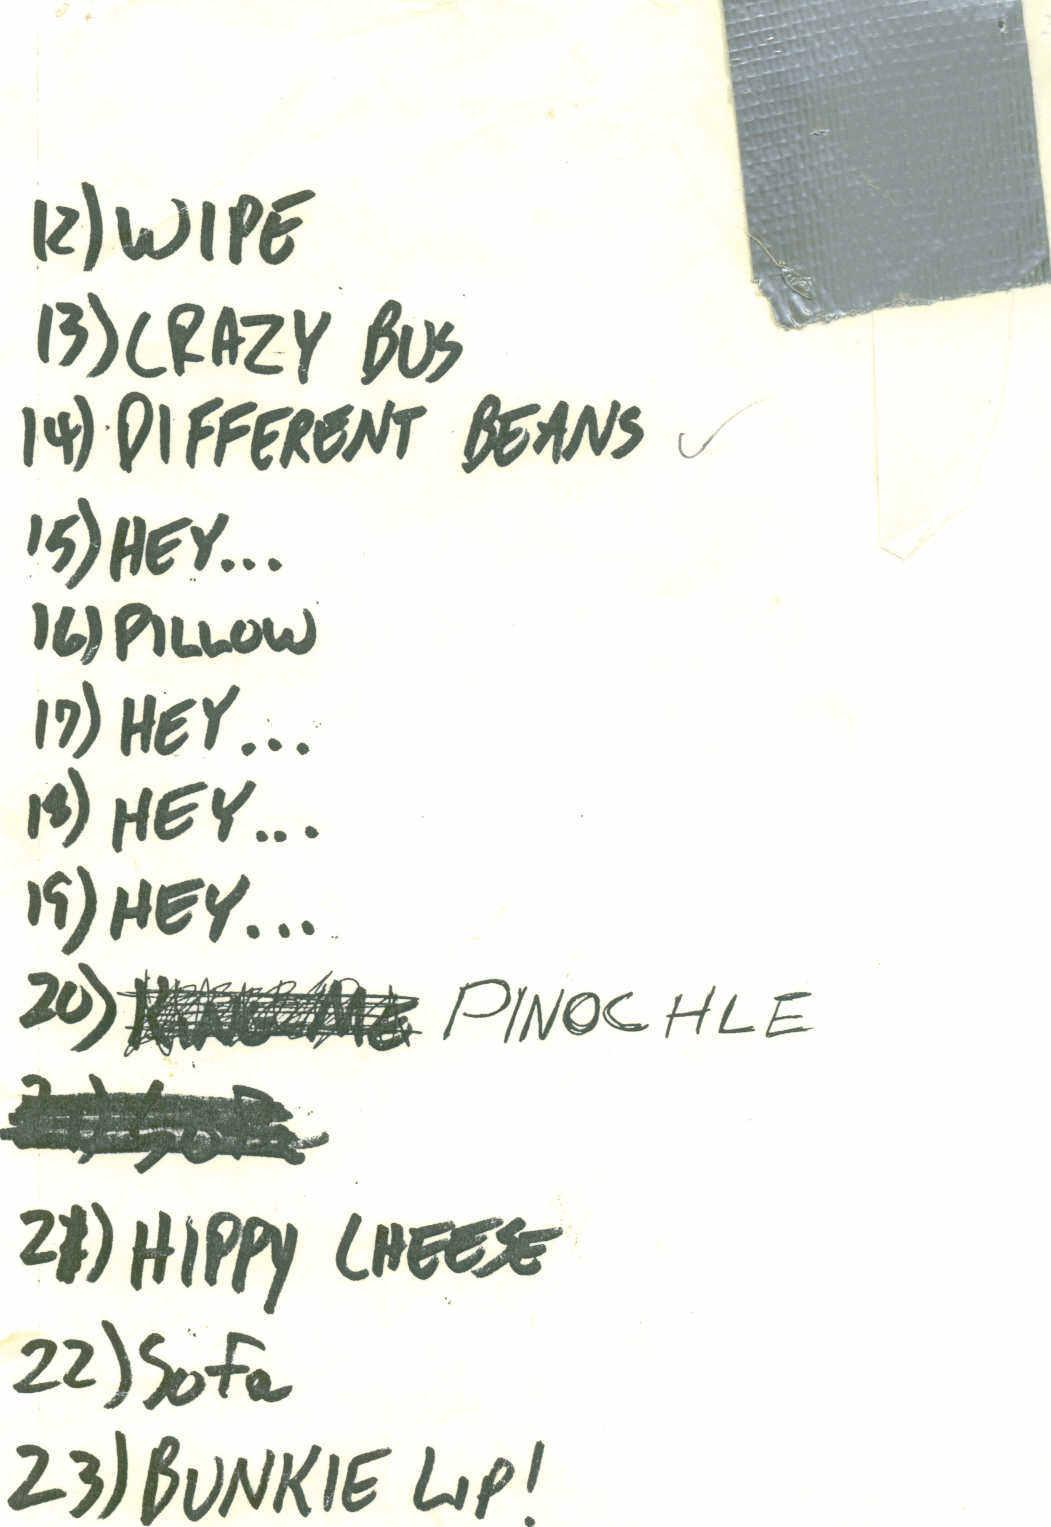 12) WIPE
13) CRAZY BUS
14) DIFFERENT BEANS ✓
15) HEY...
16) PILLOW
17) HEY...
18) HEY...
19) HEY...
20) PINOCHLE
21) HIPPY CHEESE
22) Sofa
23) BUNKIE LIP!